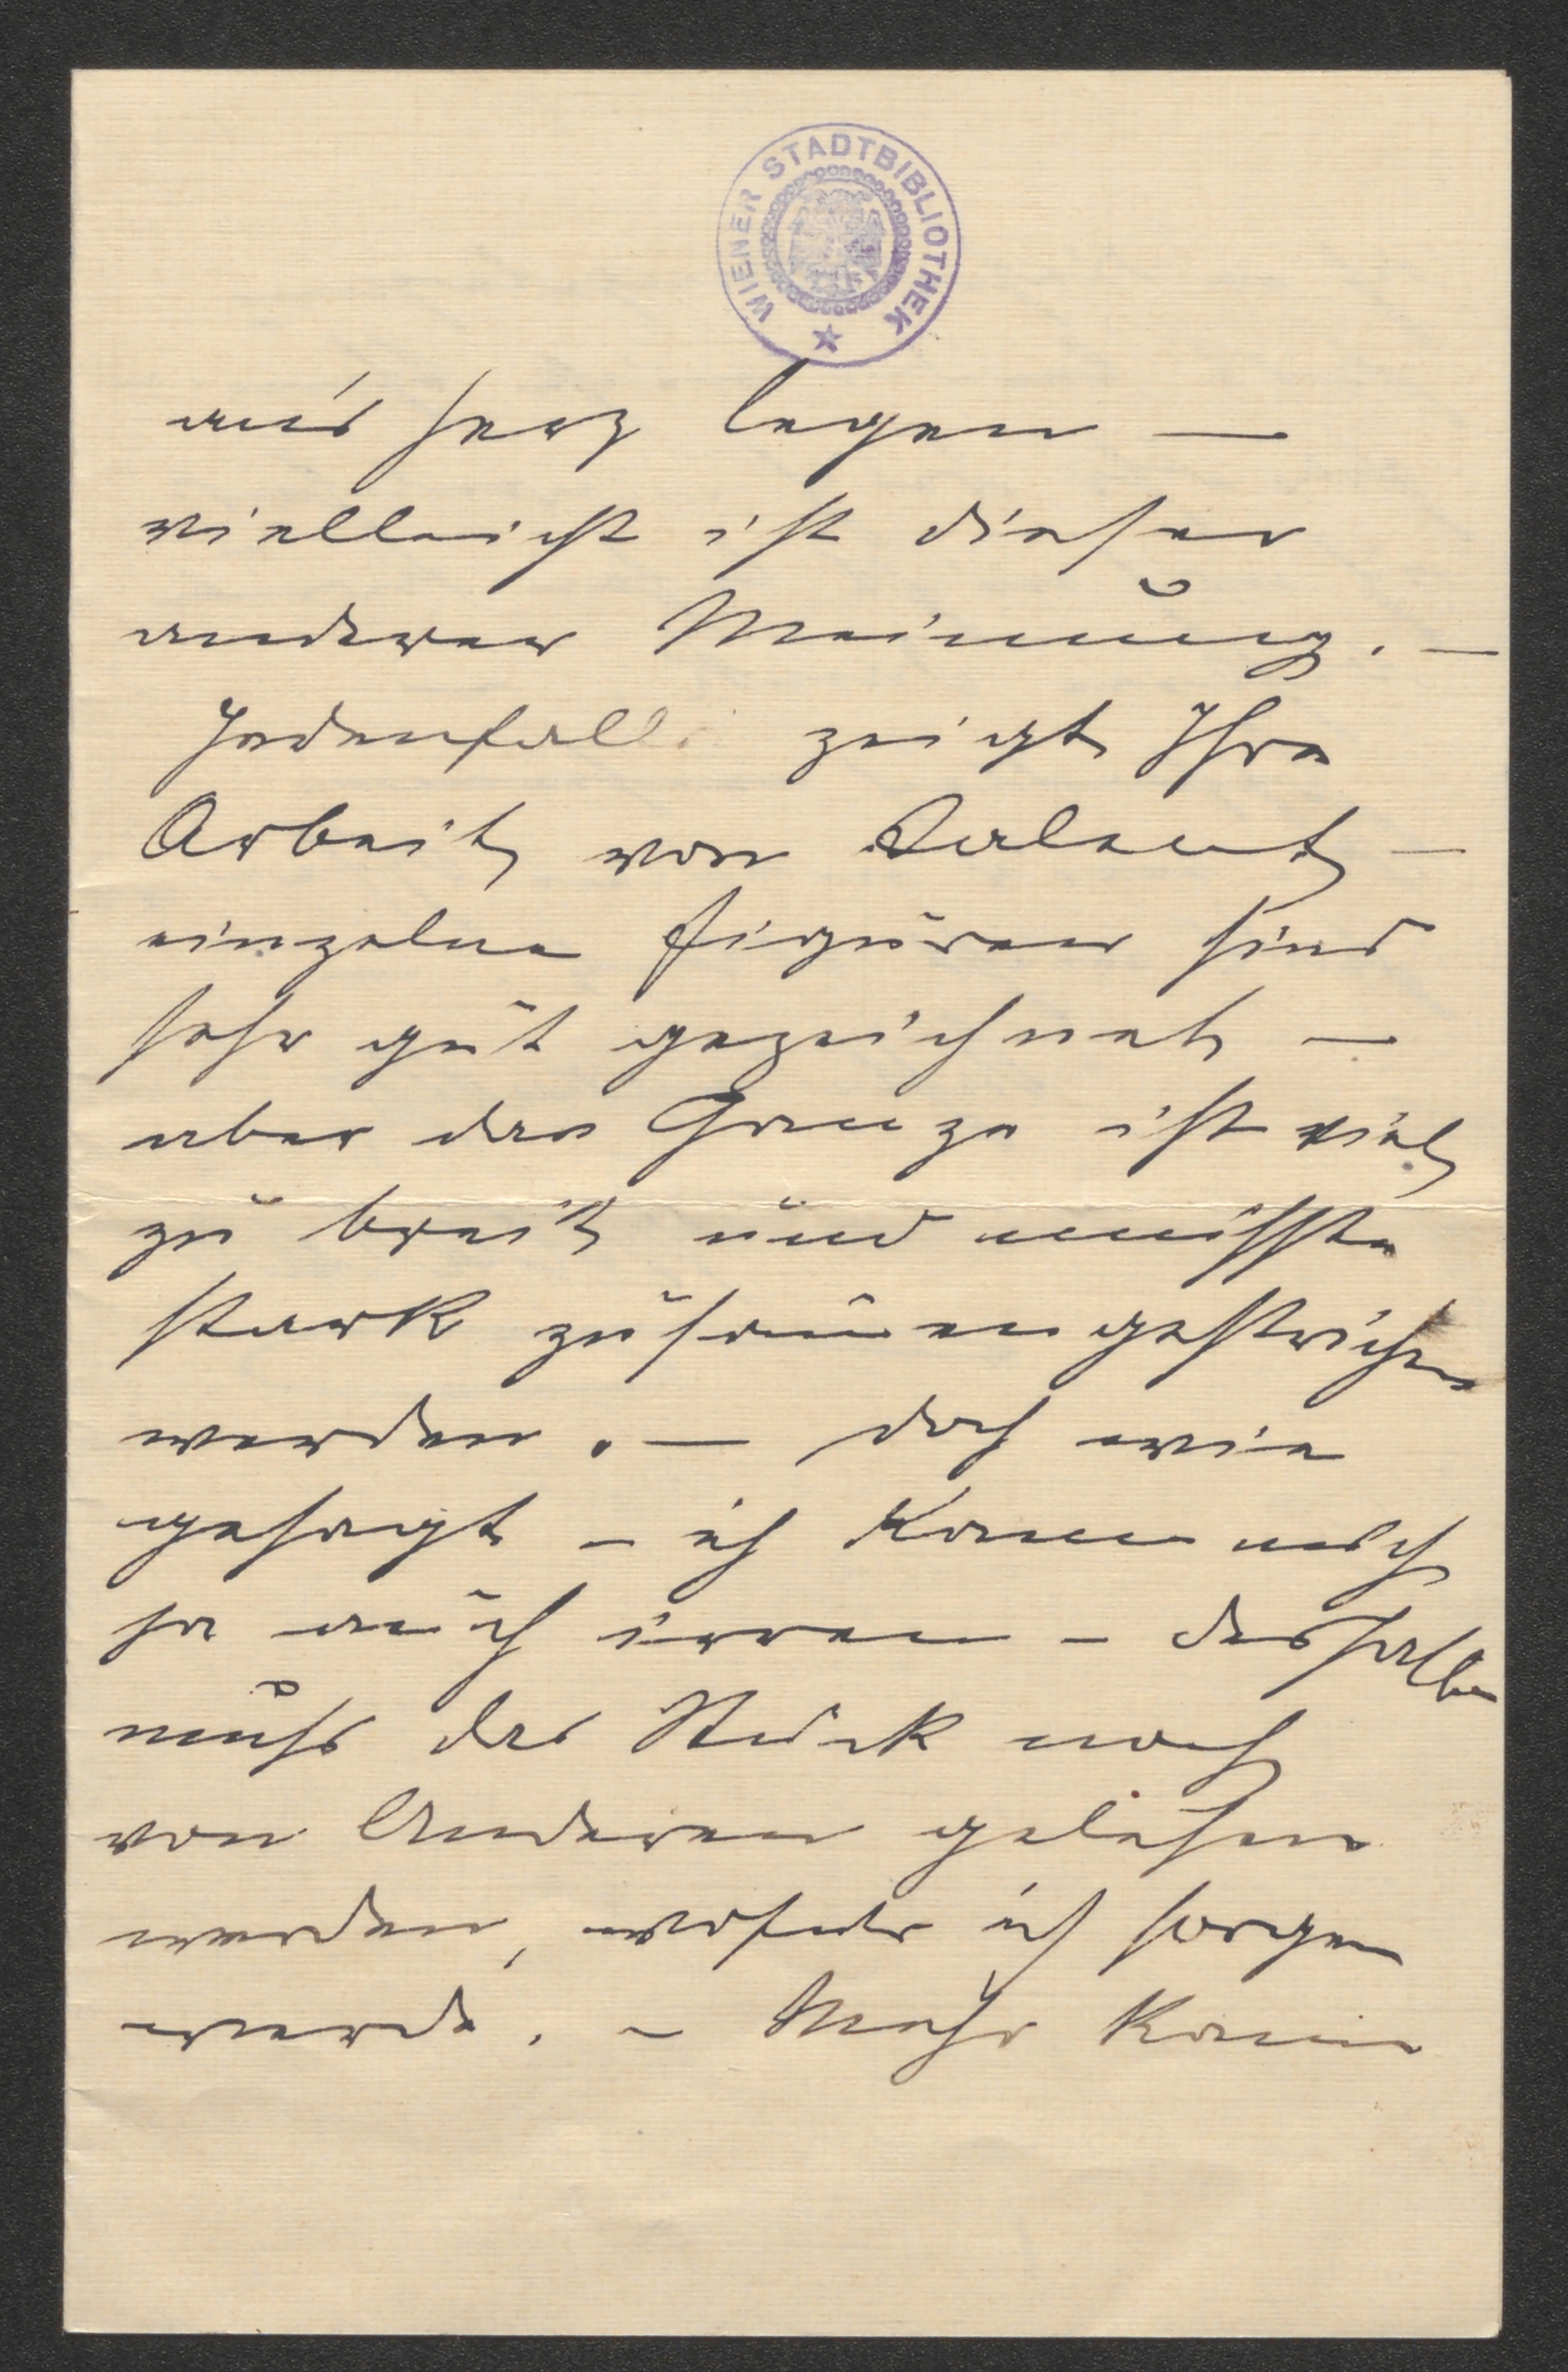 WIENER STADTBIBLIOTHEK
an's Herz legen —
vielleicht ist dieser
anderer Meinung. —
Jedenfalls zeigt Ihre
Arbeit von Talent —
einzelne Figuren sind
sehr gut gezeichnet —
aber das Ganze ist viel
zu breit und müsste
stark zusam̄engestrichen
werden. — doch wie
gesagt – ich kann mich
ja auch irren – deshalb
muß das Stück noch
von Anderen gelesen
werden, wofür ich sorgen
werde. – Mehr kann